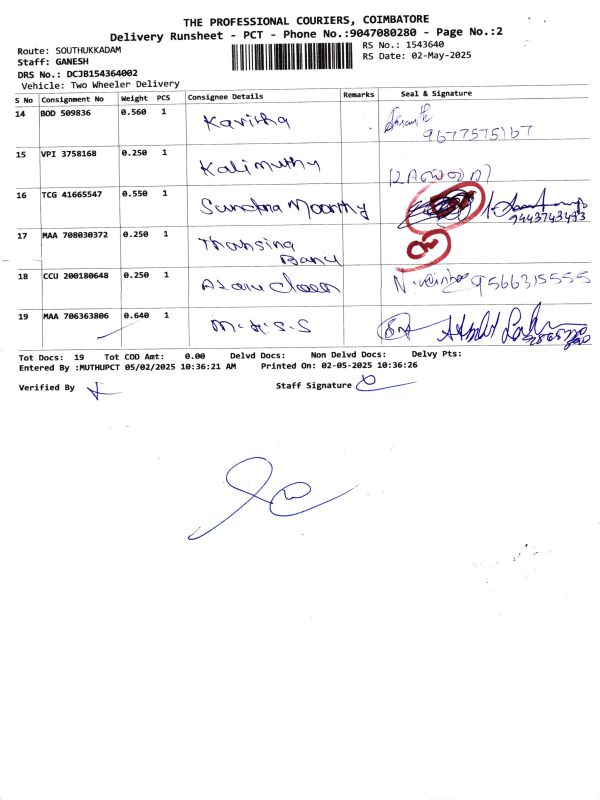 THE PROFESSIONAL COURIERS, COIMBATORE
Delivery Runsheet - PCT - Phone No.:9047080280 - Page No.:2
Route: SOUTHUKKADAM
RS No.: 1543640
Staff: GANESH
RS Date: 02-May-2025
DRS No.: DCJB154364002
Vehicle: Two Wheeler Delivery
S No Consignment No Weight PCS Consignee Details Remarks Seal & Signature
14 BOD 509836 0.560 1 Kavitha 9677575167
15 VPI 3758168 0.250 1 Kalimuthu
16 TCG 41665547 0.550 1 Sundra Moorthy 9443743493
17 MAA 708030372 0.250 1 Thansina Banu
18 CCU 200180648 0.250 1 9566315555
19 MAA 706363806 0.640 1 M.H.S.S
Tot Docs: 19 Tot COD Amt: 0.00 Delvd Docs: Non Delvd Docs: Delvy Pts:
Entered By :MUTHUPCT 05/02/2025 10:36:21 AM Printed On: 02-05-2025 10:36:26
Verified By Staff Signature